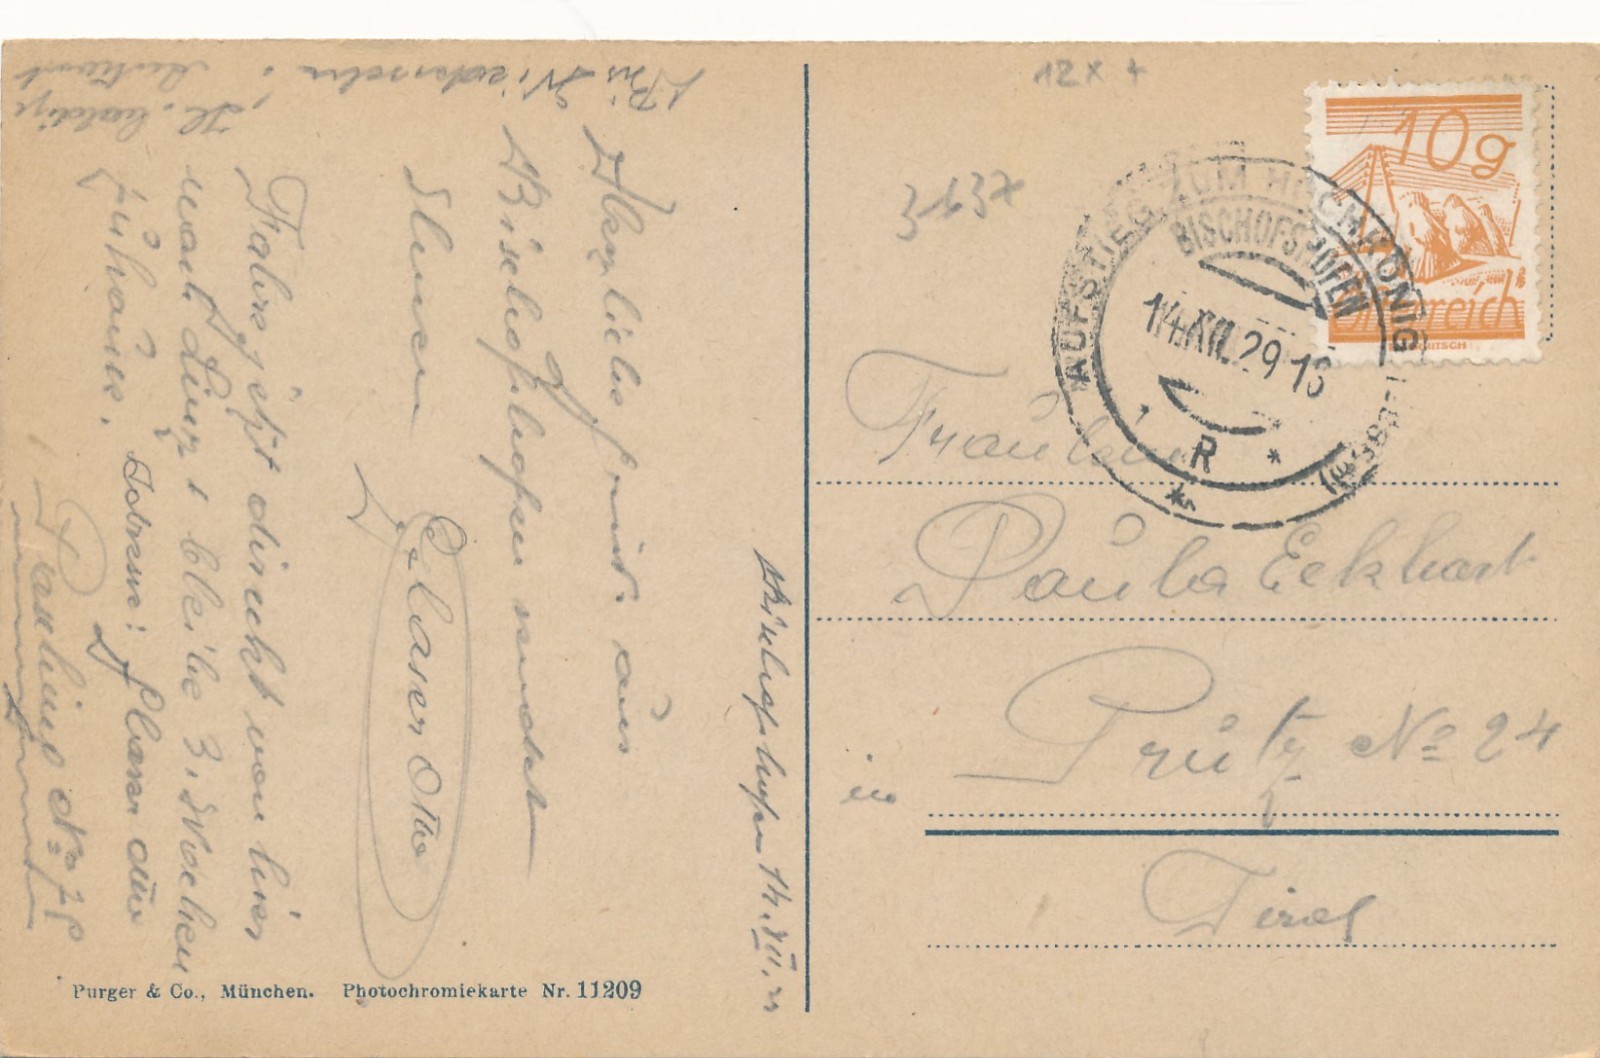 Bischofshofen 14. XII. 29
Herzliche Grüße aus
Bischofshofen sendet
Ihnen
Glaser Otto
Fahre jetzt direkt von hier
nach Linz & bleibe 3 Wochen
zuhause. Adresse: Glaser Otto
Pasching No 78
Bis Wiedersehn!
H. baldige Antwort
Purger & Co., München. Photochromiekarte Nr. 11209
12 x +
3637
10g
Österreich
AUFSTIEG ZUM HOCHKÖNIG
BISCHOFSHOFEN
14.XII.29
R
Fräulein
Paula Eckhart
in Prutz No 24
Tirol